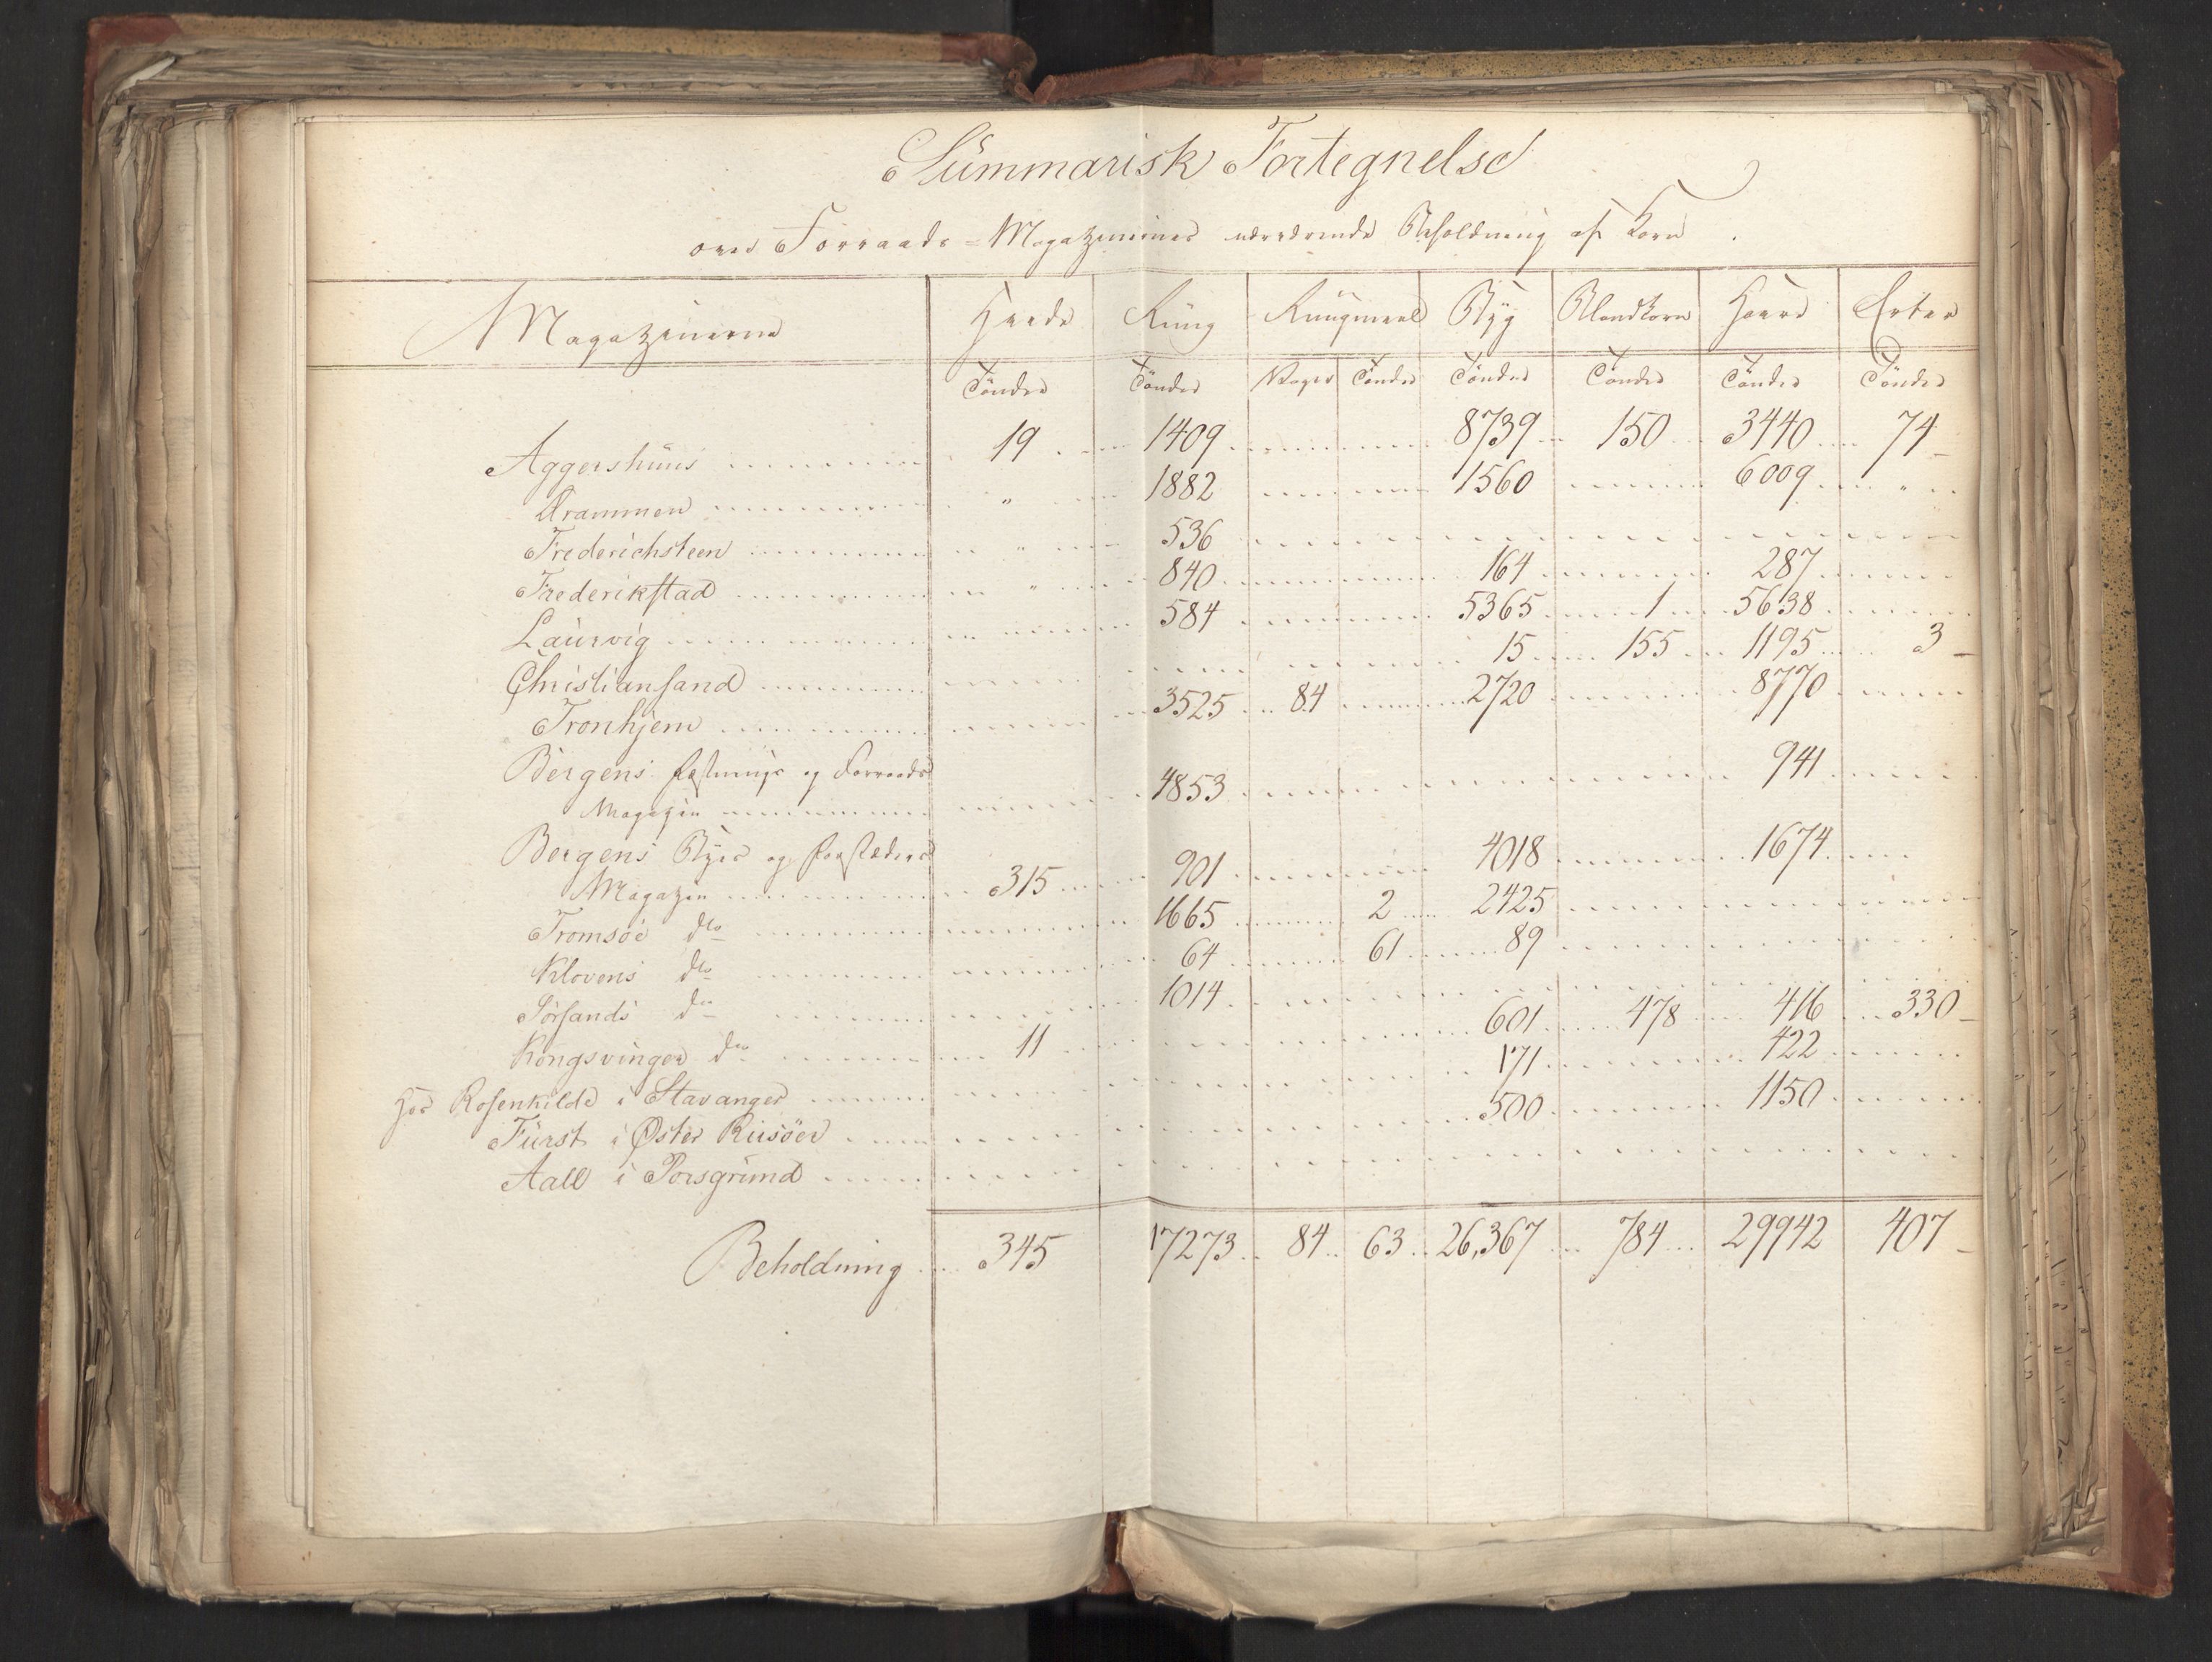 Summarisk Fortegnelse
over Forraads=Magazinernes nærværende Beholdning af Korn.
Magazinerne Hvede Ruug Ruugmeel Byg Blandkorn Havre Erter
Tönder Tönder Voger Tönder Tönder Tönder Tönder Tönder
Aggershuus 19 1409 8739 150 3440 74
Drammen " 1882 1560 6009 "
Frederichsteen " 536
Frederikstad " 840 164 287
Laurvig 584 5365 1 5638
Christiansand 15 155 1195 3
Tronhjem 3525 84 2720 8770
Bergens Fæstnings og Forraads
Magazin 4853 941
Bergens Byes og Forstæders
Magazin 315 901 4018 1674
Tromsöe do 1665 2 2425
Klovens do 64 61 89
Sörsands do 1014
Kongsvinger do 11 601 478 416 330
Hos Rosenkilde i Stavanger 171 422
Fürst i Øster Riisöer 500 1150
Aall i Porsgrund
Beholdning 345 17273 84 63 26,367 784 29942 407